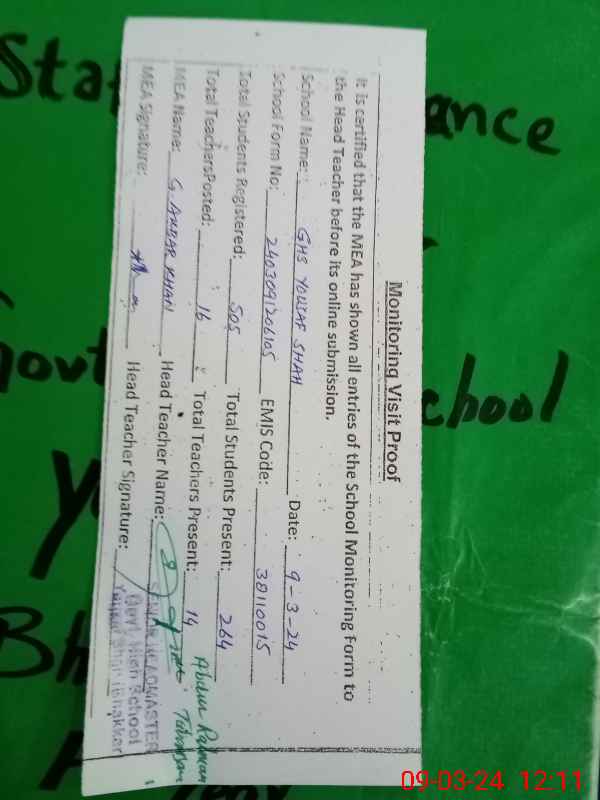 Monitoring Visit Proof
It is certified that the MEA has shown all entries of the School Monitoring Form to
the Head Teacher before its online submission.
School Name: GHS YOUSAF SHAH Date: 9-3-24
School Form No: 2403091206105 EMIS Code: 38110015
Total Students Registered: 505 Total Students Present: 264
Total TeachersPosted: 16 Total Teachers Present: 14
MEA Name: G. AKBAR KHAN Head Teacher Name: Abdur Rahman
MEA Signature: Head Teacher Signature:
SENIOR HEADMASTER
Govt. High School
Yousaf Shah
ance
chool
09-03-24 12:11